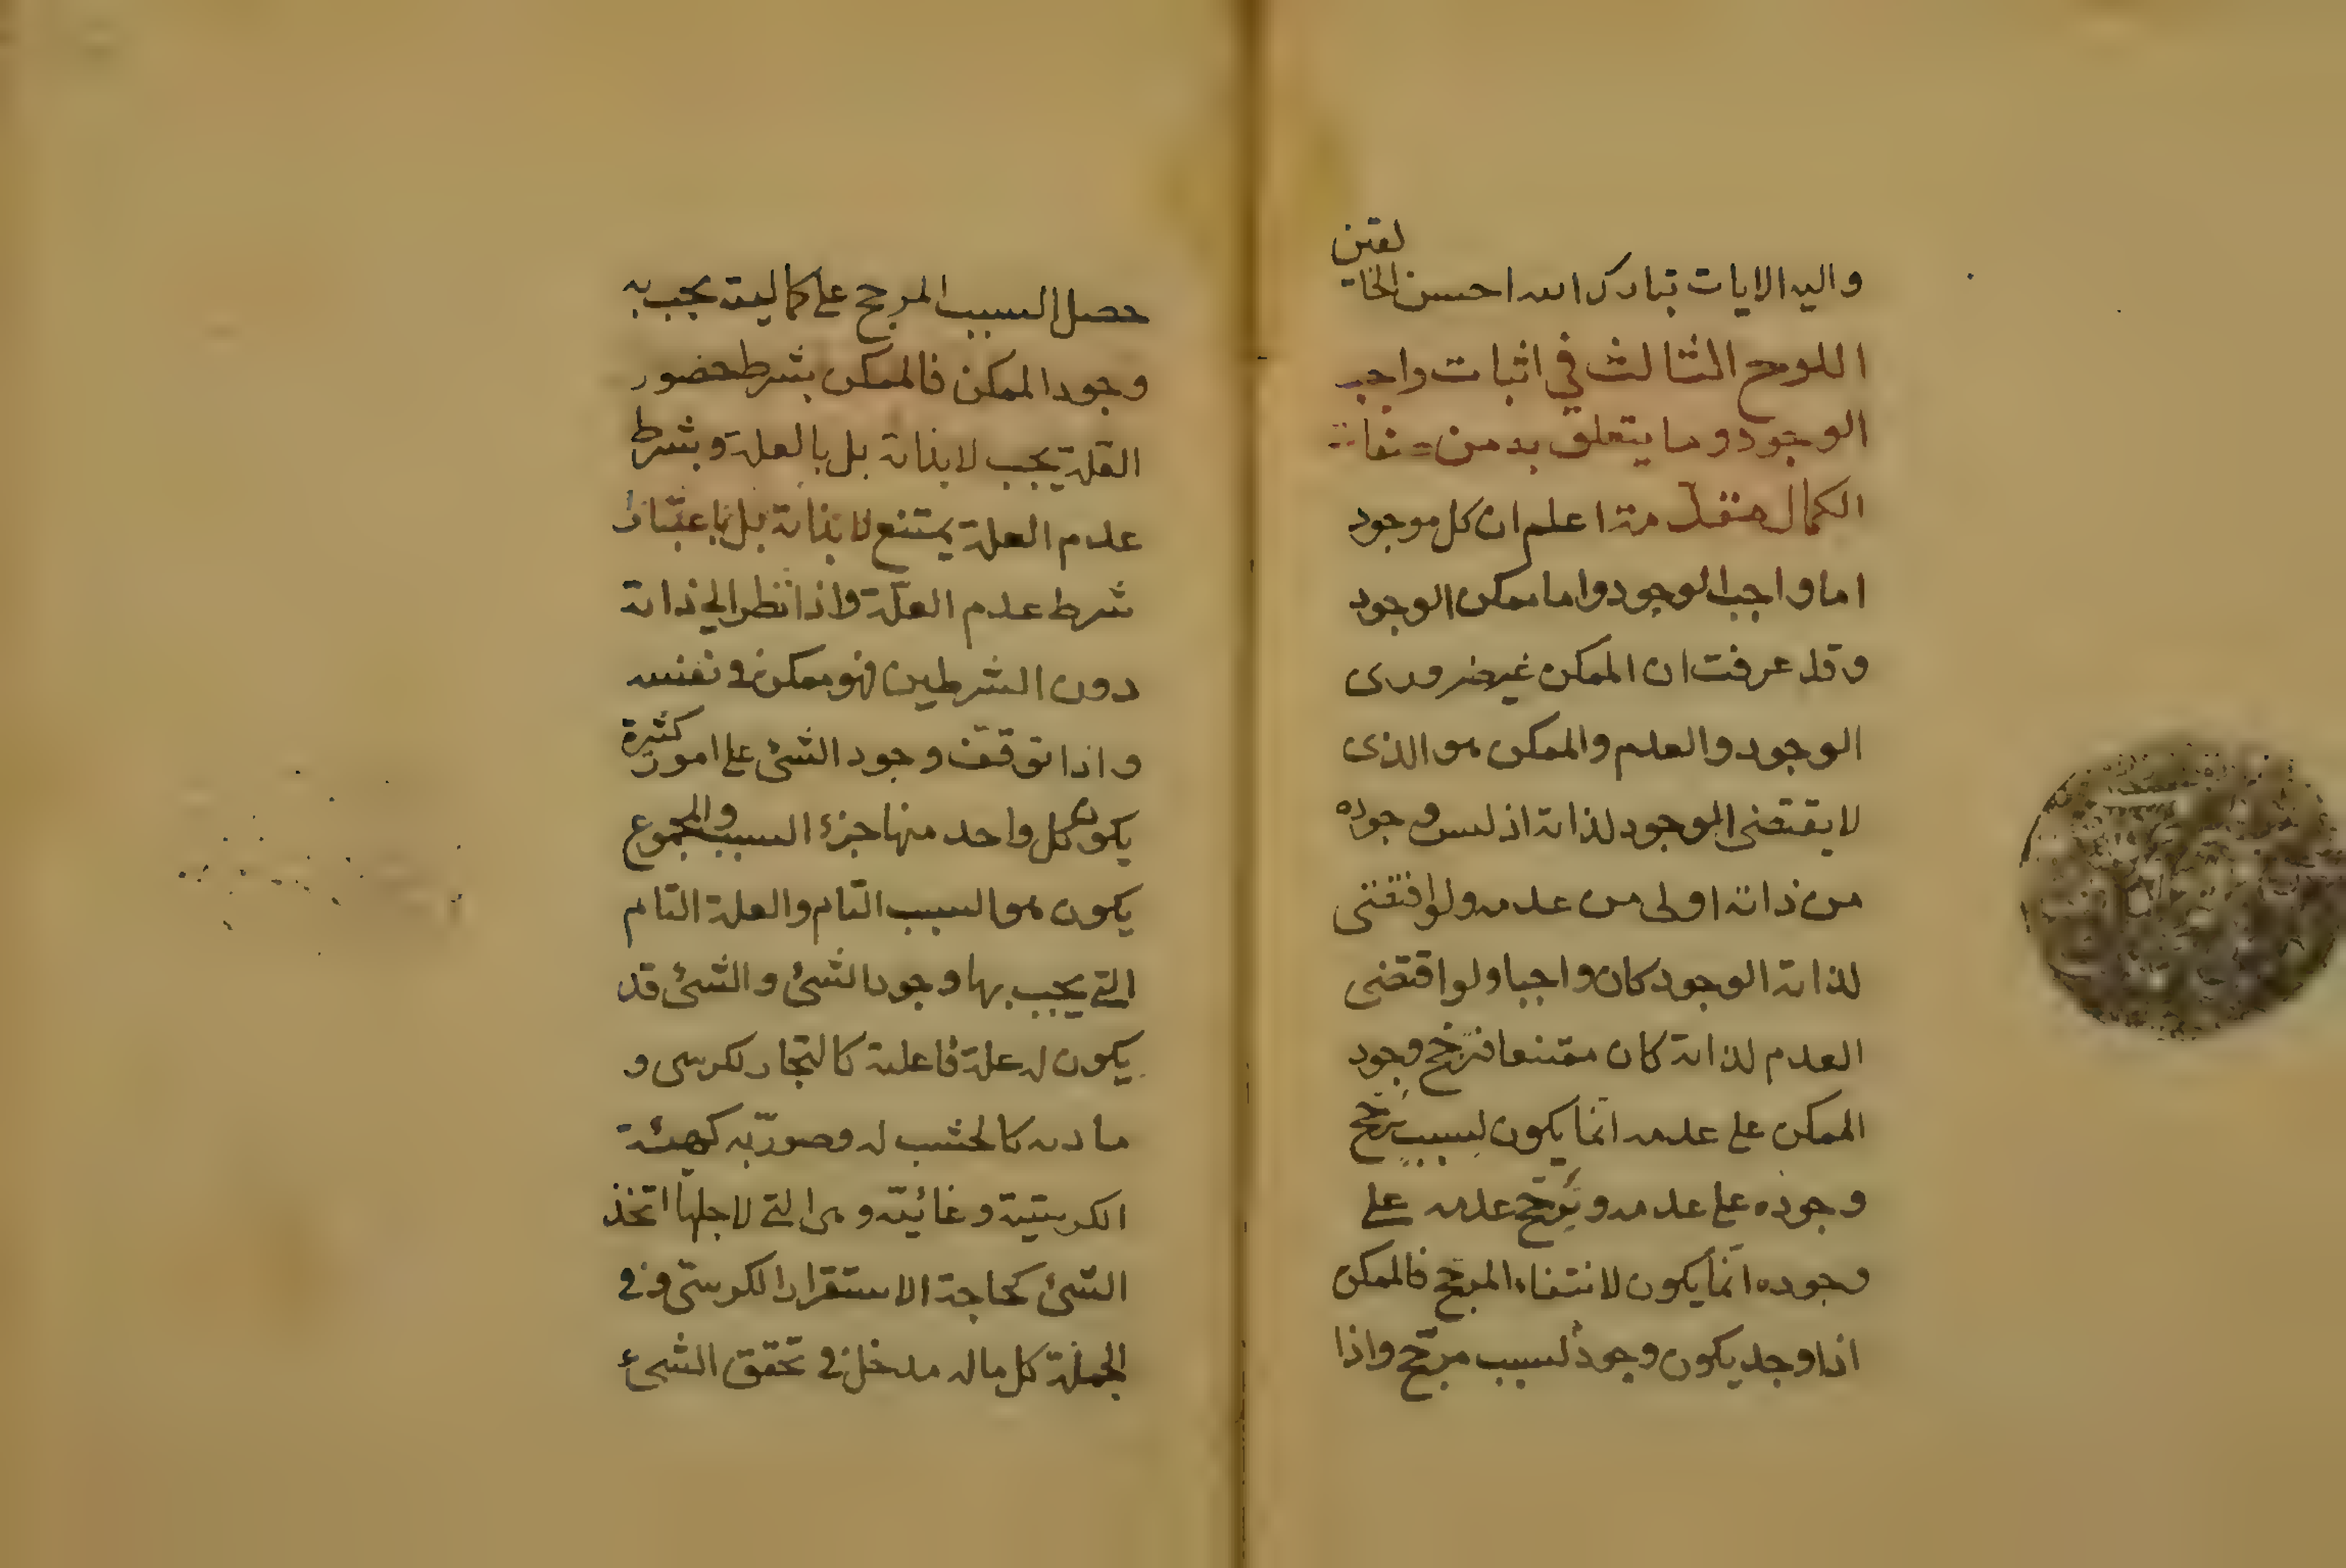 واليه الايات تبارك الله احسن الخالقين
اللوح الثالث في اثبات واجب
الوجود وما يتعلق به من
الكمال مقدمة اعلم ان كل موجود
اما واجب الوجود واما ممكن الوجود
وقد عرفت ان الممكن غير ضرورى
الوجود والعدم والممكن هو الذى
لا يقتضى الوجود لذاته اذ ليس وجوده
من ذاته اولى من عدمه ولو اقتضى
لذاته الوجود كان واجبا ولو اقتضى
العدم لذاته كان ممتنعا فترجح وجود
الممكن على عدمه انما يكون لسبب يرجح
وجوده على عدمه وترجح عدمه على
وجوده انما يكون لانتفاء المرجح فالممكن
اذا وجد يكون وجوده لسبب مرجح واذا
حصل السبب المرجح على كماليته يجب به
وجود الممكن فالممكن بشرط حضور
العلة يجب لا بذاته بل بالعلة وبشرط
عدم العلة يمتنع لا بذاته بل باعتبار
شرط عدم العلة واذا نظر الى ذاته
دون الشرطين فهو ممكن في نفسه
واذا توقف وجود الشئ على امور كثيرة
يكون كل واحد منها جزء السبب والمجموع
يكون هو السبب التام والعلة التام
التى يجب بها وجود الشئ والشئ قد
يكون له علة فاعلية كالنجار لكرسى و
مادية كالخشب له وصورية كهيئة
الكرسيية وغائية وهى التى لاجلها اتخذ
الشئ كحاجة الاستقرار الكرسى وفى
الجملة كل ماله مدخل فى تحقق الشئ